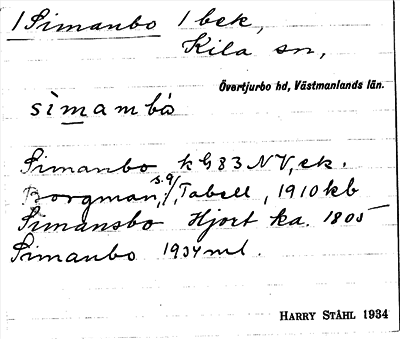 1 Simanbo 1 bek,
Kila sn,
Övertjurbo hd, Västmanlands län.
sìmambò
Simanbo k G83 NV, ek.
Borgman, s. 9/, Tabell, 1910 kb
Simansbo Hjort ka. 1805
Simanbo 1934 ml.
HARRY STÅHL 1934